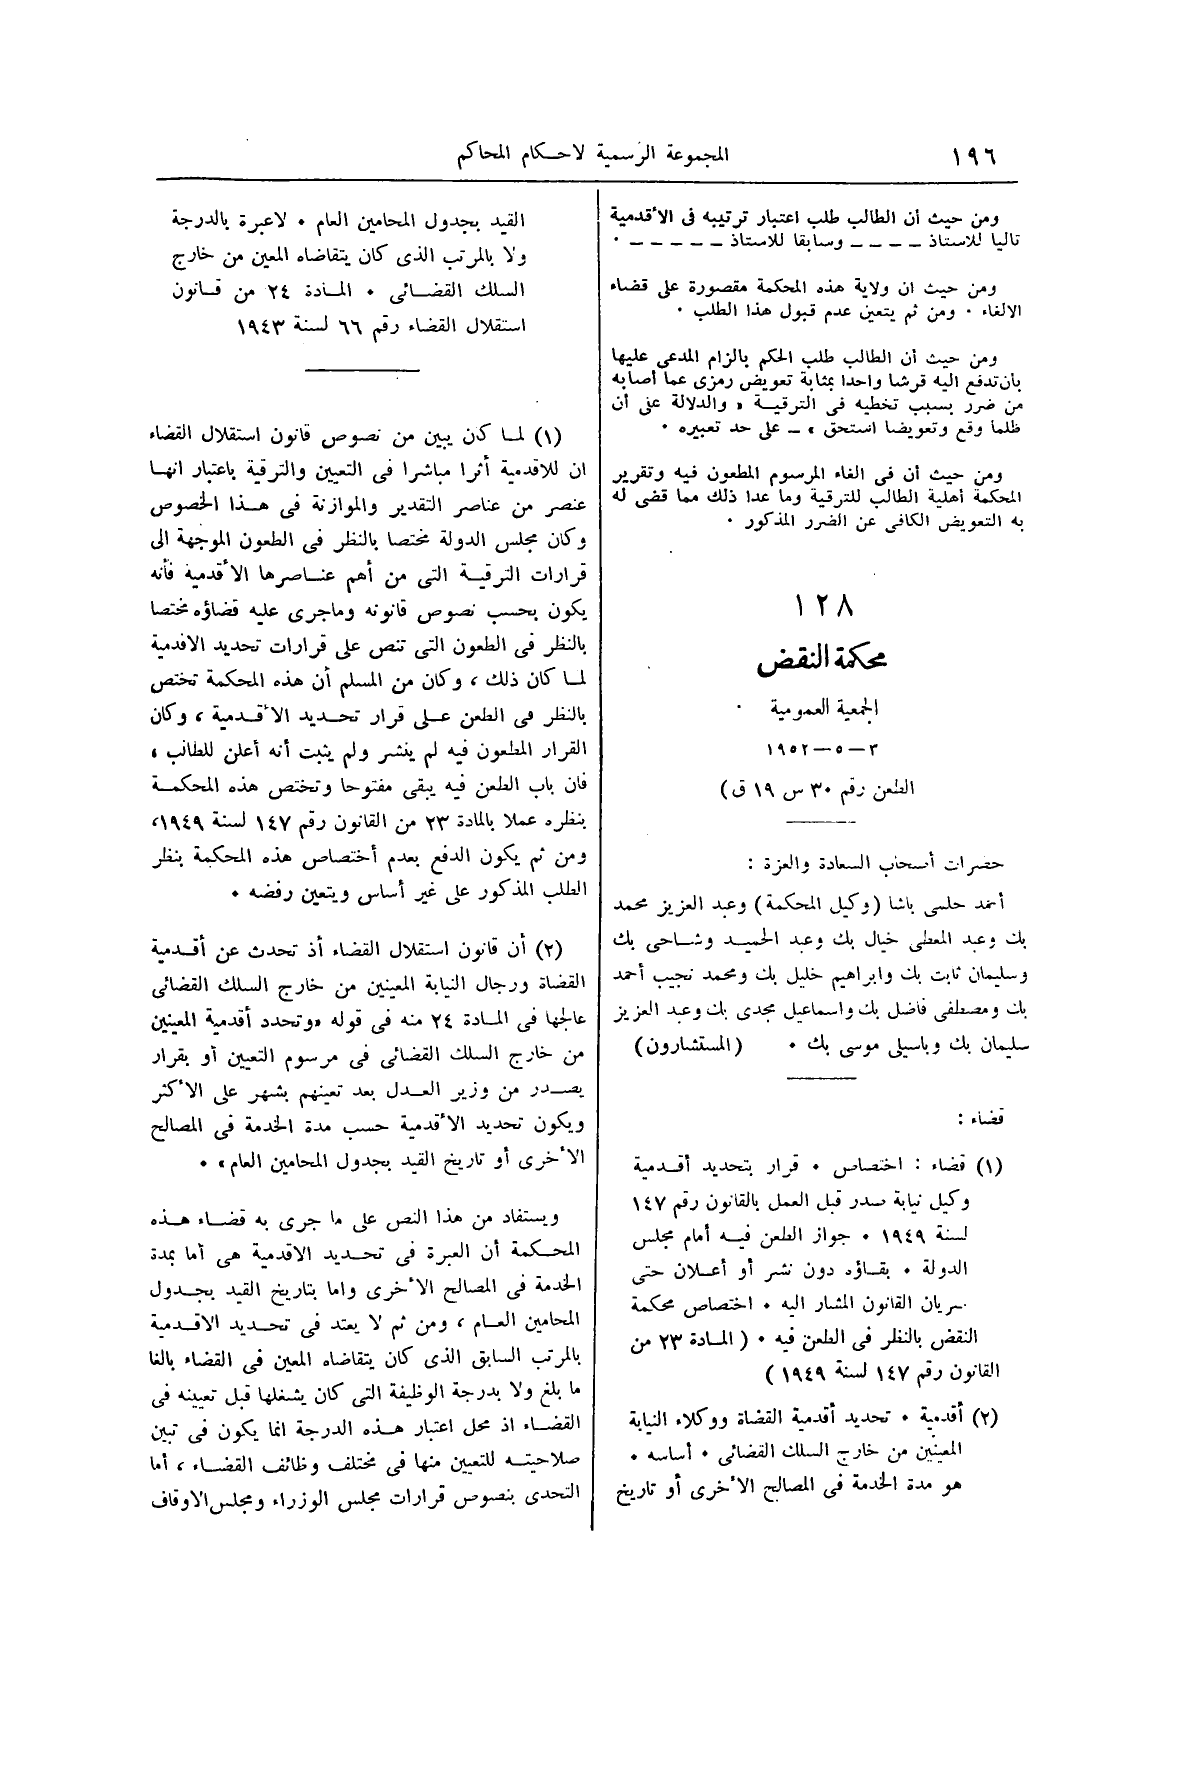 ١٩٦
المجموعة الرسمية لاحكام المحاكم
ومن حيث أن الطالب طلب اعتبار ترتيبه فى الأقدمية
تاليا للاستاذ ـ ـ ـ ـ وسابقا للاستاذ ـ ـ ـ ـ ـ ٠
ومن حيث ان ولاية هذه المحكمة مقصورة على قضاء
الالغاء ٠ ومن ثم يتعين عدم قبول هذا الطلب ٠
ومن حيث أن الطالب طلب الحكم بالزام المدعى عليها
بأن تدفع اليه قرشا واحدا بمثابة تعويض رمزى عما أصابه
من ضرر بسبب تخطيه فى الترقيـة « والدلالة على أن
ظلما وقع وتعويضا استحق » ـ على حد تعبيره ٠
ومن حيث أن فى الغاء المرسوم المطعون فيه وتقرير
المحكمة أهلية الطالب للترقية وما عدا ذلك مما قضى له
به التعويض الكافى عن الضرر المذكور ٠
١٢٨
محكمة النقض
الجمعية العمومية
٣ – ٥ – ١٩٥٢
الطعن رقم ٣٠ س ١٩ ق)
حضرات أصحاب السعادة والعزة :
أحمد حلمى باشا (وكيل المحكمة) وعبد العزيز محمد
بك وعبد المعطى خيال بك وعبد الحميد وشاحى بك
وسليمان ثابت بك وابراهيم خليل بك ومحمد نجيب أحمد
بك ومصطفى فاضل بك واسماعيل مجدى بك وعبد العزيز
سليمان بك وباسيلى موسى بك ٠ (المستشارون)
قضاء :
(١) قضاء : اختصاص ٠ قرار بتحديد أقـدمية
وكيل نيابة صدر قبل العمل بالقانون رقم ١٤٧
لسنة ١٩٤٩ ٠ جواز الطعن فيـه أمام مجلس
الدولة ٠ بقـاؤه دون نشر أو أعـلان حتى
سريان القانون المشار اليه ٠ اختصاص محكمة
النقض بالنظر فى الطعن فيه ٠ ( المـادة ٢٣ من
القانون رقم ١٤٧ لسنة ١٩٤٩ )
(٢) أقدمية ٠ تحديد أقدمية القضاة ووكلاء النيابة
المعينين من خارج السلك القضائى ٠ أساسه ٠
هو مدة الخدمة فى المصالح الأخرى أو تاريخ
القيد بجدول المحامين العام ٠ لاعبرة بالدرجة
ولا بالمرتب الذى كان يتقاضاه المعين من خارج
السلك القضـائى ٠ المـادة ٢٤ من قـانون
استقلال القضاء رقم ٦٦ لسنة ١٩٤٣
(١) لمـا كان يبين من نصوص قانون استقلال القضاء
ان للاقدمية أثرا مباشرا فى التعيين والترقية باعتبار انهـا
عنصر من عناصر التقدير والموازنة فى هـذا الخصوص
وكان مجلس الدولة مختصا بالنظر فى الطعون الموجهة الى
قرارات الترقيـة التى من أهم عنـاصرها الأقدمية فأنه
يكون بحسب نصوص قانونه وماجرى عليه قضاؤه مختصا
بالنظر فى الطعون التى تنص على قرارات تحديد الاقدمية
لمـا كان ذلك ، وكان من المسلم أن هذه المحكمة تختص
بالنظر فى الطعن عـلى قرار تحـديد الأقـدمية ، وكان
القرار المطعون فيه لم ينشر ولم يثبت أنه أعلن للطالب ،
فان باب الطعن فيه يبقى مفتوحا وتختص هذه المحكمـة
بنظره عملا بالمادة ٢٣ من القانون رقم ١٤٧ لسنة ١٩٤٩،
ومن ثم يكون الدفع بعدم أختصاص هذه المحكمة بنظر
الطلب المذكور على غير أساس ويتعين رفضه ٠
(٢) أن قانون استقلال القضاء أذ تحدث عن أقـدمية
القضاة ورجال النيابة المعينين من خارج السلك القضائى
عالجها فى المـادة ٢٤ منه فى قوله «وتحدد أقدمية المعينين
من خارج السلك القضائى فى مرسوم التعيين أو بقرار
يصـدر من وزير العـدل بعد تعينهم بشهر على الأكثر
ويكون تحديد الأقدمية حسب مدة الخدمة فى المصالح
الأخرى أو تاريخ القيد بجدول المحامين العام» ٠
ويستفاد من هذا النص على ما جرى به قضـاء هـذه
المحـكمة أن العبرة فى تحـديد الاقدمية هى أما بمدة
الخدمة فى المصالح الأخرى واما بتاريخ القيد بجـدول
المحامين العـام ، ومن ثم لا يعتد فى تحـديد الاقـدمية
بالمرتب السابق الذى كان يتقاضاه المعين فى القضاء بالغا
ما بلغ ولا بدرجة الوظيفة التى كان يشغلها قبل تعيينه فى
القضـاء اذ محل اعتبار هـذه الدرجة انما يكون فى تبين
صلاحيتـه للتعيين منها فى مختلف وظائف القضـاء ، أما
التحدى بنصوص قرارات مجلس الوزراء ومجلس الاوقاف